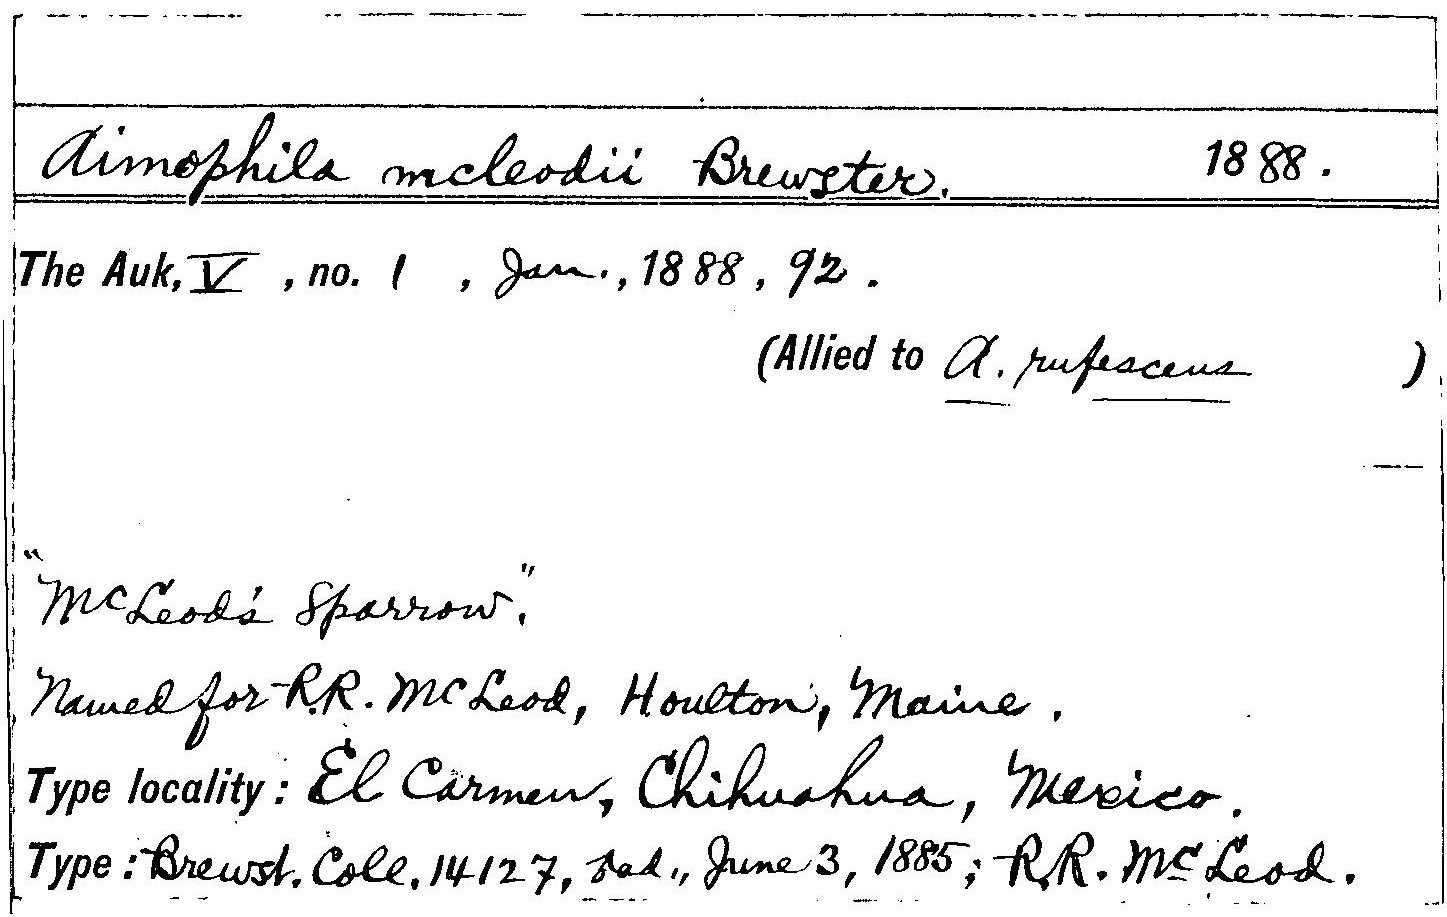 Aimophila mcleodii Brewster. 1888.
The Auk, V, no. 1, Jan., 1888, 92.
(Allied to A. rufescens)
"McLeod's Sparrow".
Named for R.R. McLeod, Houlton, Maine.
Type locality: El Carmen, Chihuahua, Mexico.
Type: Brewst. Coll. 14127, ♂ad., June 3, 1885; R.R. McLeod.